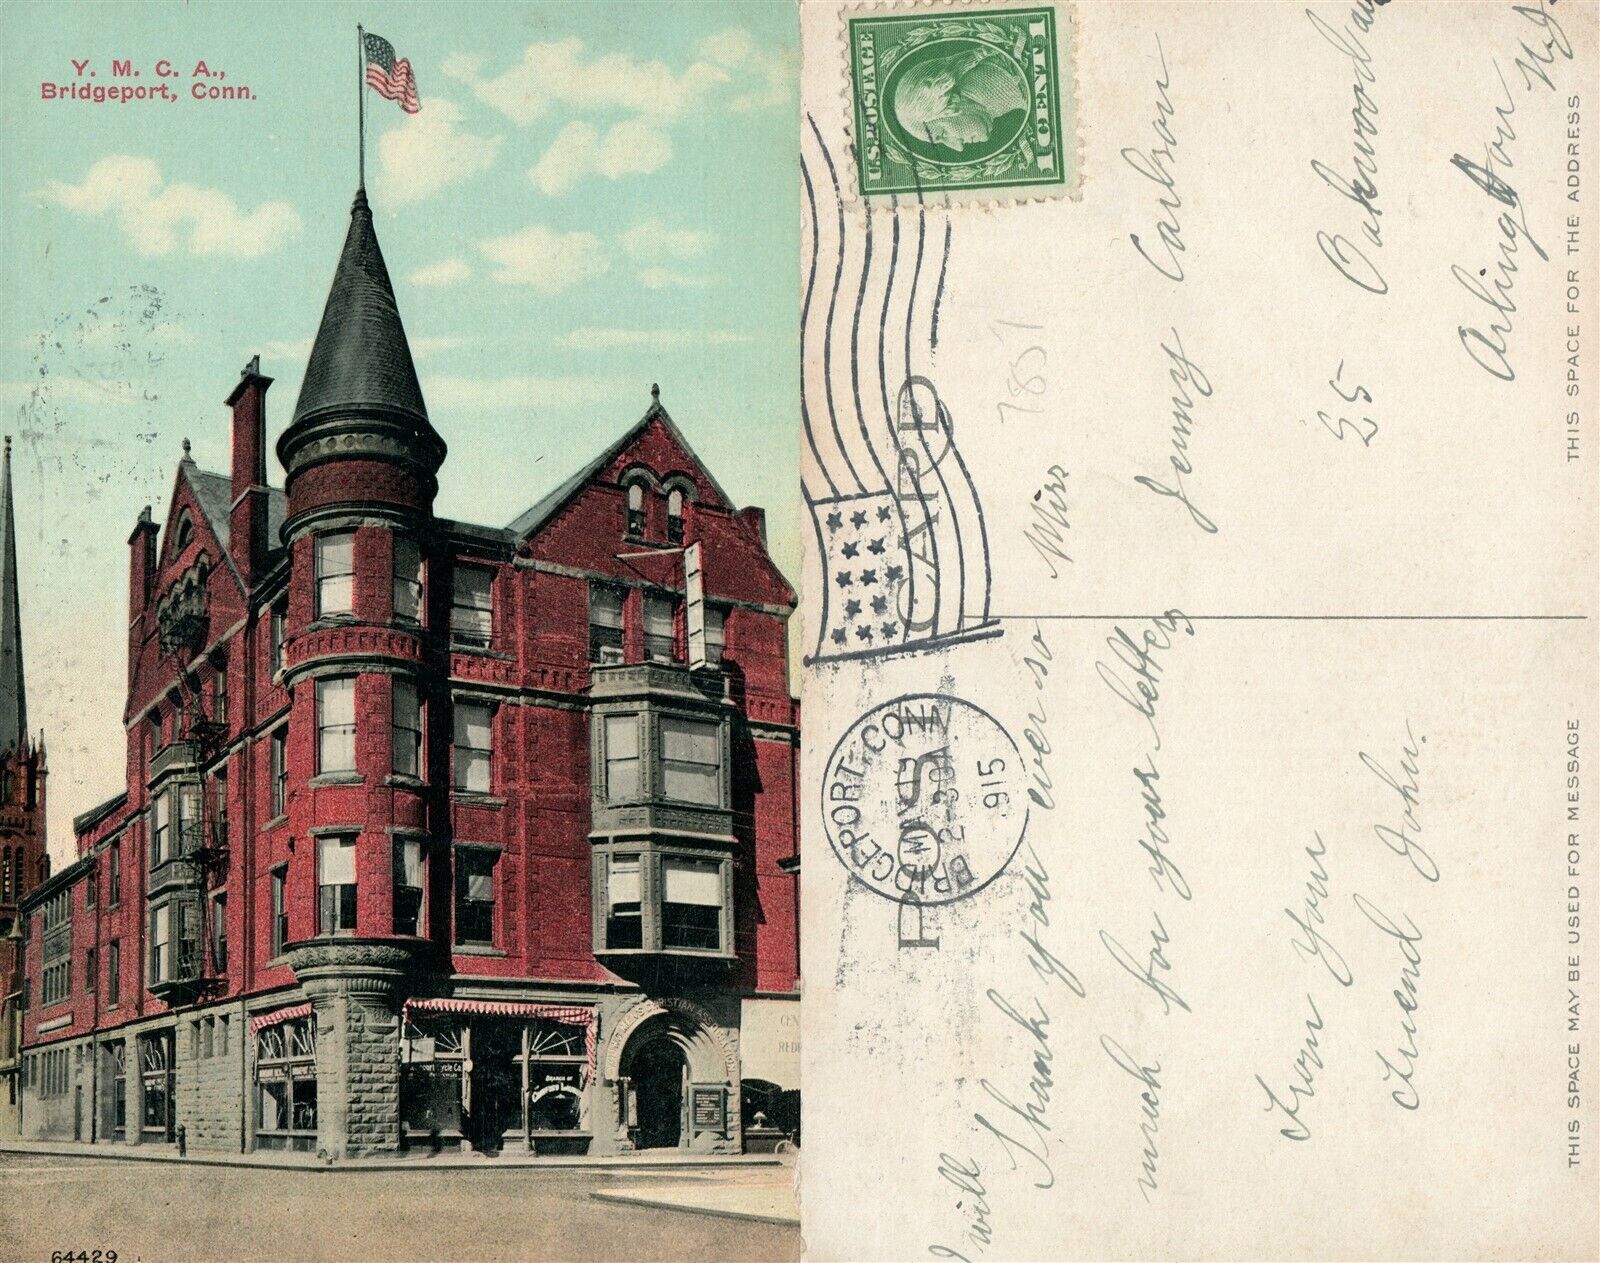 Y. M. C. A.,
Bridgeport, Conn.
64429
CHRISTIAN ASSOCIATION
Cycle Co.
BRANCH OF
U.S. POSTAGE
1 CENT 1
POST CARD
BRIDGEPORT, CONN.
2-30A
1915
7851
I will
Thank you ever so
much for your letter,
From Your
Friend John.
Miss
Jenny Carlson
25 Oakwood
Arlington N.J.
THIS SPACE MAY BE USED FOR MESSAGE
THIS SPACE FOR THE ADDRESS